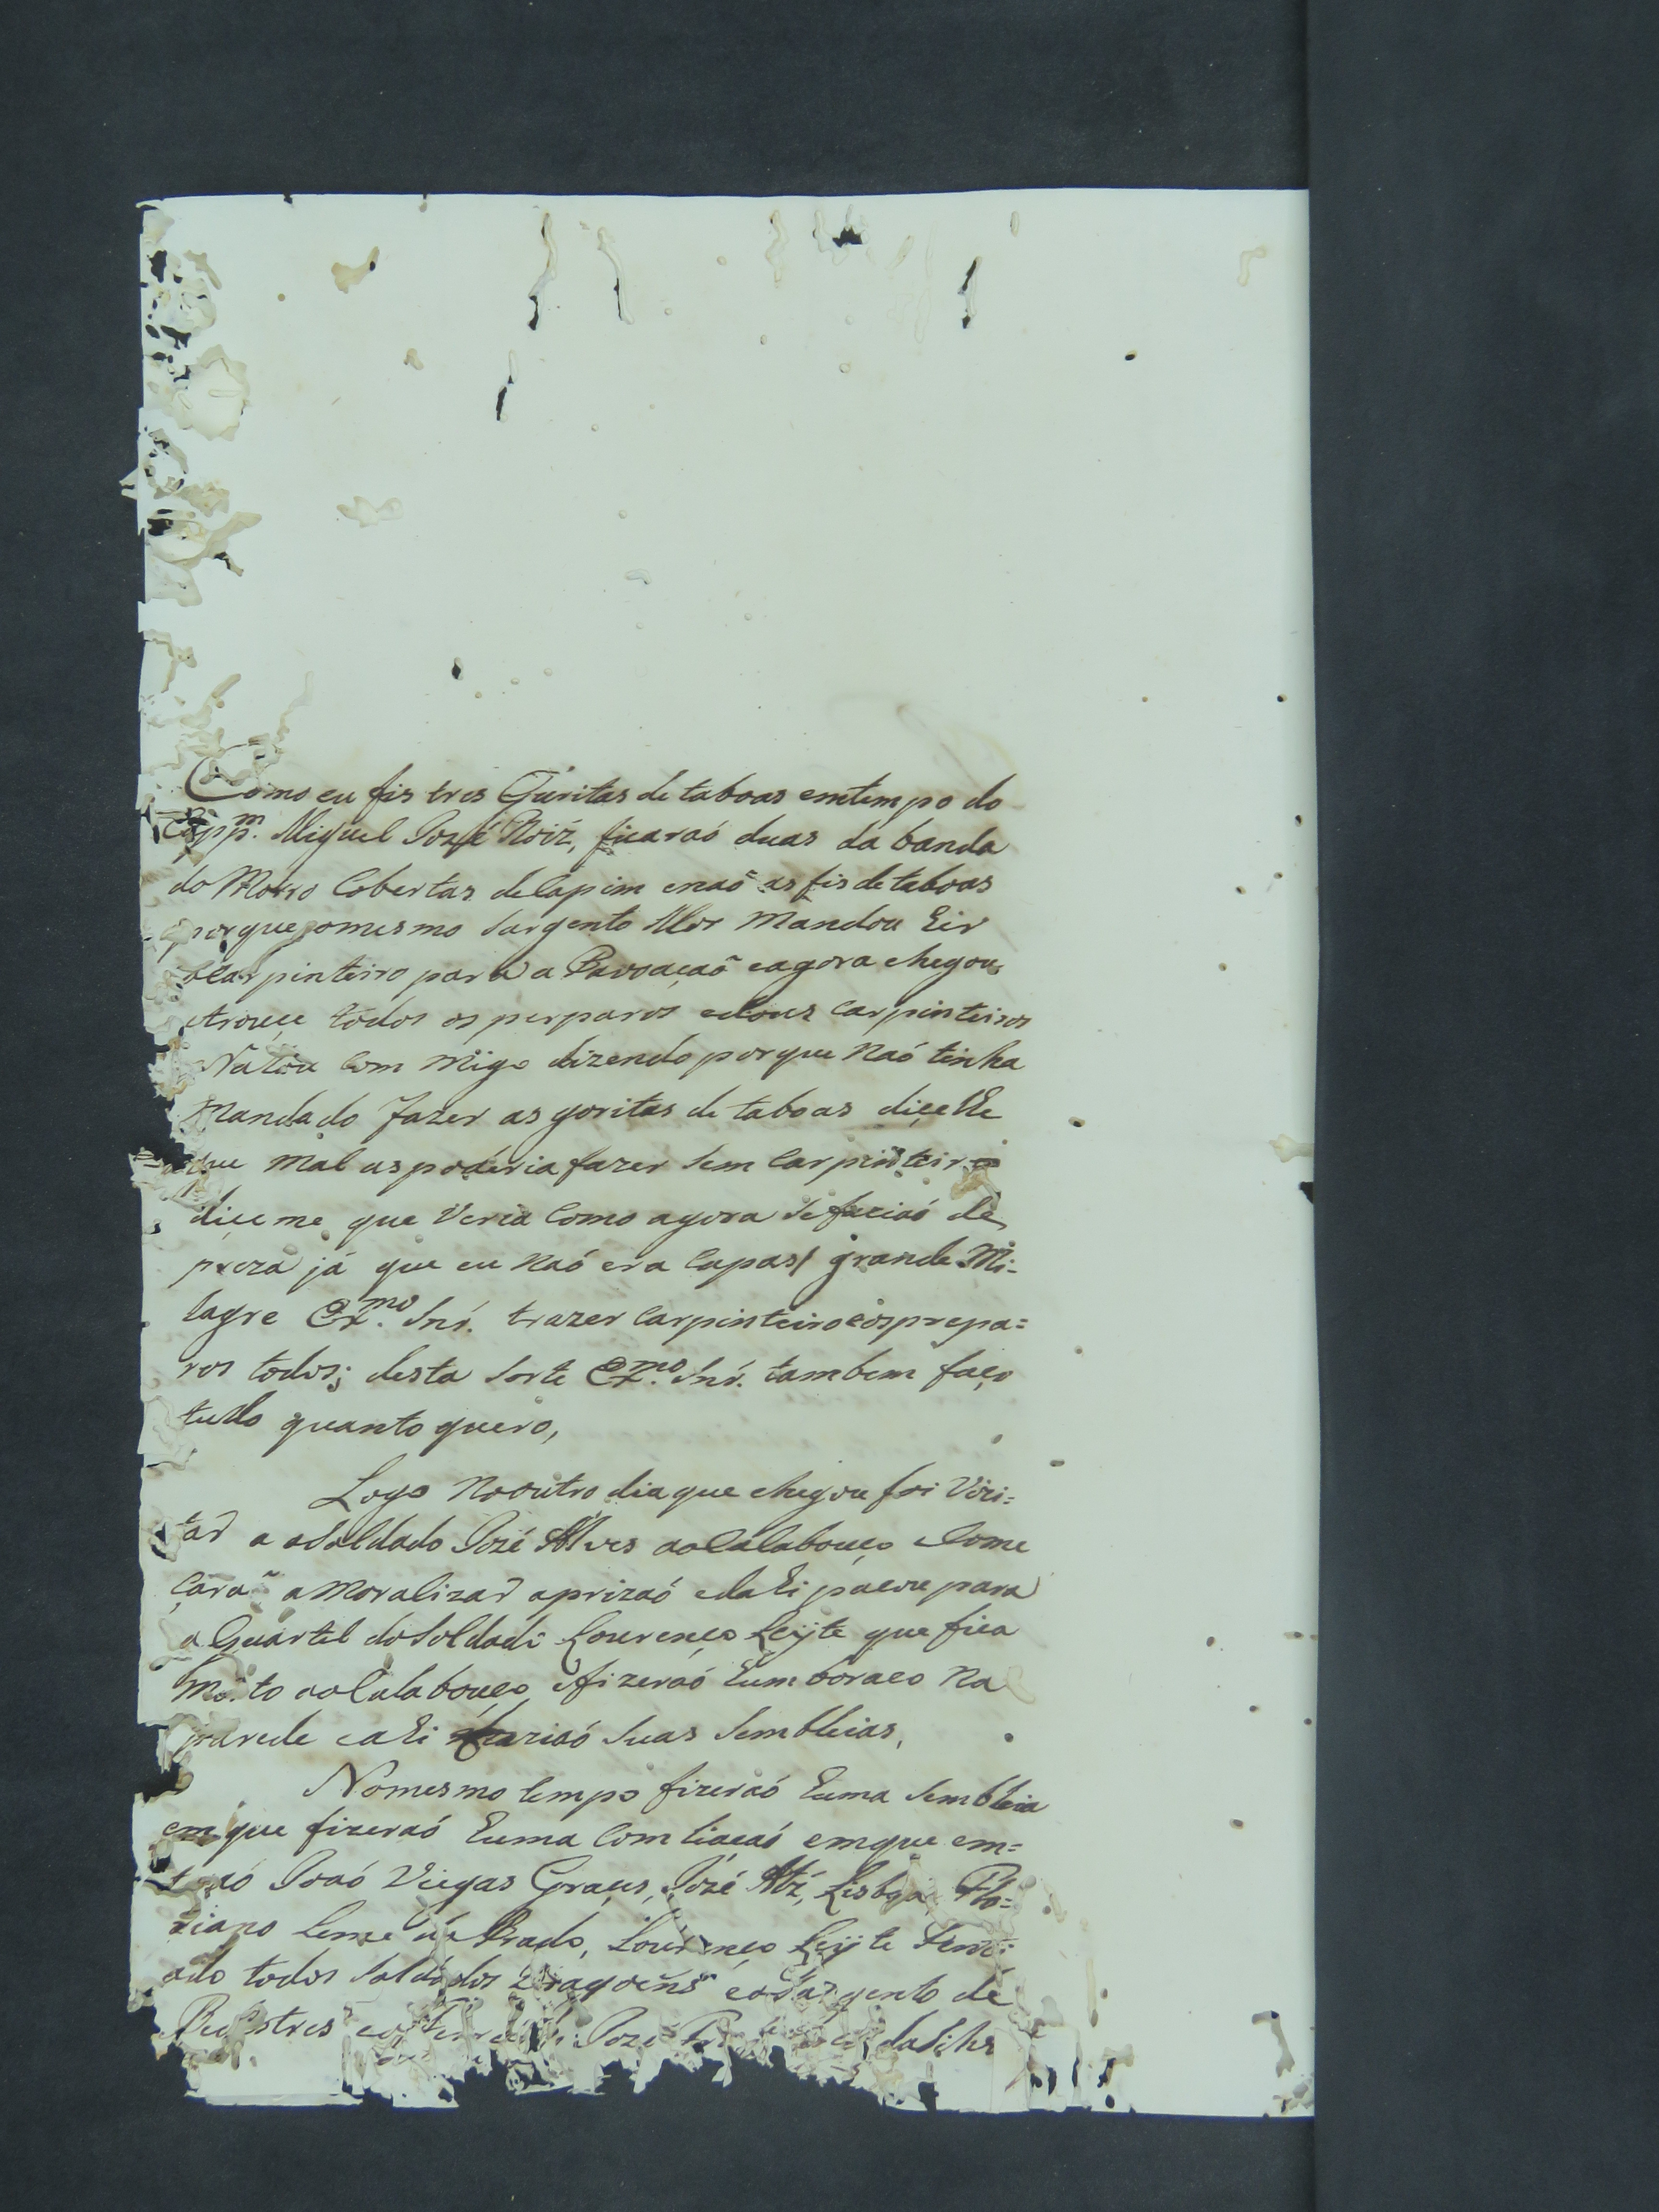 Como eu fis tres Guritas de taboas emtempo do
Cappm. Miguel Jozé Roiz, ficaraó duas da banda
do Morro Cobertas deCapim enaõ as fis de taboas
porque omesmo Sargento Mor Mandou Hir
oCarpinteiro para a Povoaçaõ eagora chegou
etrouçe todos os perparos edous Carpinteiros
ComMigo dizendo porque Naó tinha
Mandado fazer as goritas de taboas diçelhe
que Mal as poderia fazer Sem Carpinteiro
diçeme que Veria Como agora Sefaziaó de
preza já que eu Naó era Capas/ grande Mi-
lagre Exmo. Snr. trazer Carpinteiro eosprepa=
ros todos; desta Sorte Exmo. Snr. tambem faço
tudo quanto quero,
Logo Nooutro dia que chegou foi Vizi=
tar a oSoldado Jozé Alves aoCalabouço eCome
çaraõ aMoralizar aprizaó edahi paçou para
o Quartel doSoldado Lourenço Leyte que fica
aoCalabouço efizeraó hum boraco Na
parede eahi faziaó Suas Sembleias,
Nomesmo tempo fizeraó huma Sembleia
emque fizeraó huma Comliaçaó emque em=
traó Joaó Viegas Graçes, Jozé Lisboa, Flo=
riano Leme do Prado, Lourenço Leyte
todos Soldados Dragoens eoSargento de
Pedestres Jozé daSilva